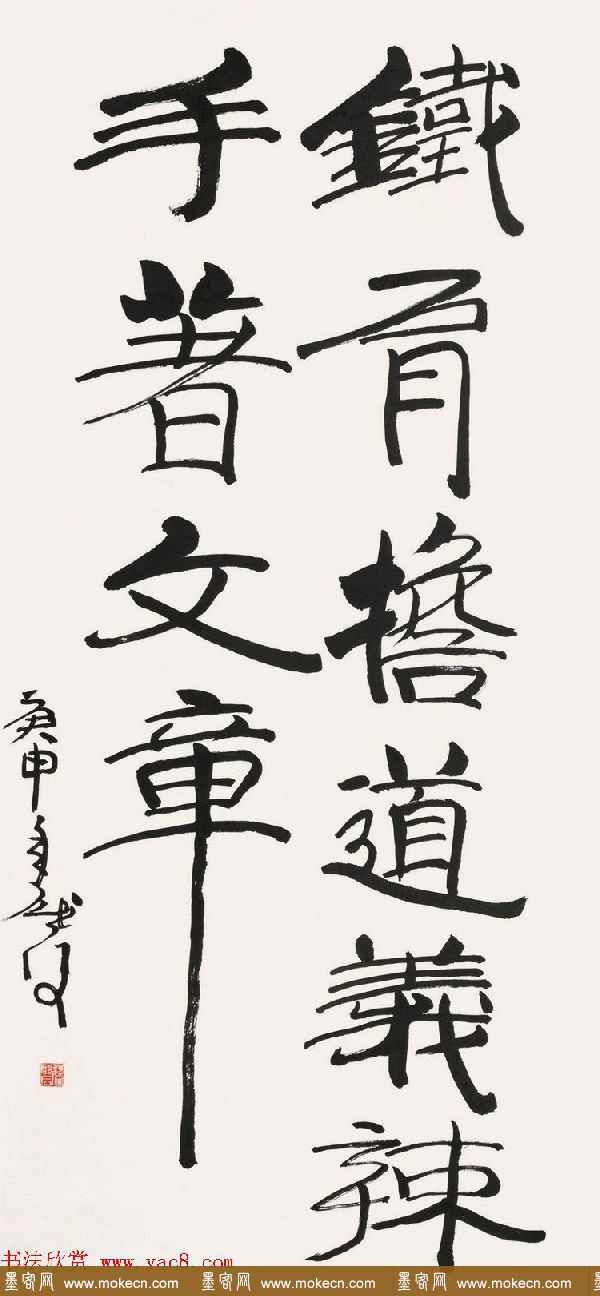 鐵肩擔道義辣
手著文章
庚申年
书法欣赏 www.yac8.com
墨客网 www.mokecn.com 墨客网 www.mokecn.com 墨客网 www.mokecn.com